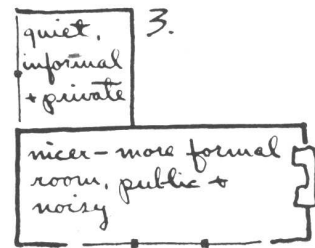 3.
quiet,
informal
+ private
nicer – more formal
room, public +
noisy